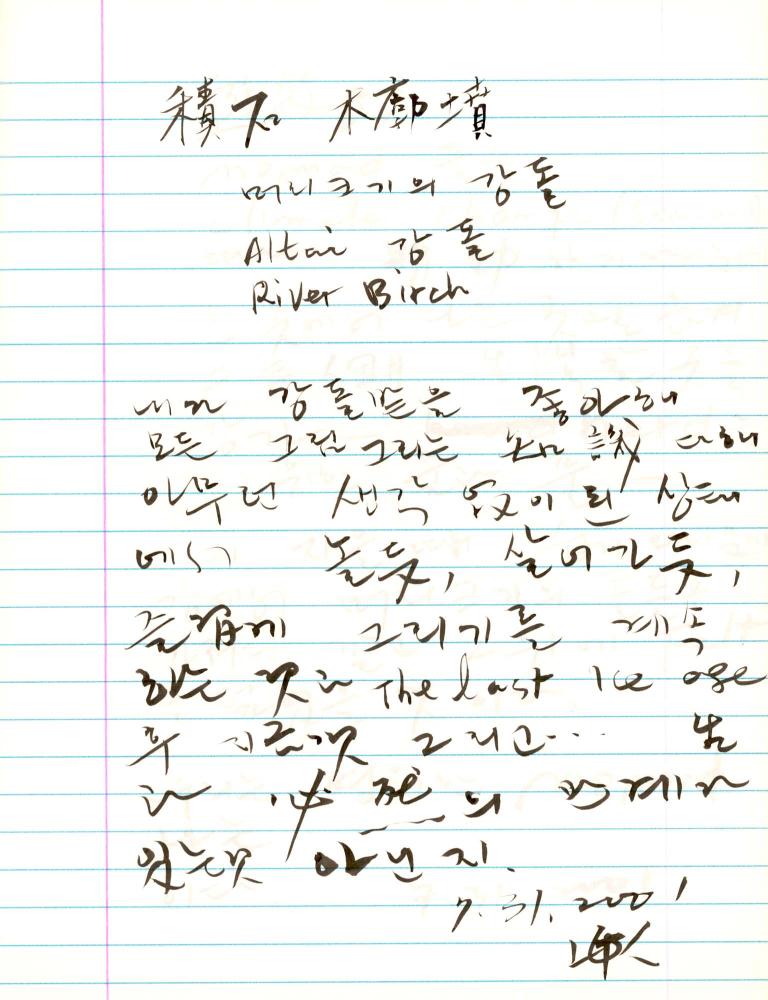 積石 木廓墳
머리크기의 강돌
Altai 강돌
River Birch
내가 강돌받을 좋아해
모든 그림그리는 知識 다해
아무런 생각 없이 된 상태
에서 놀듯, 살어가듯,
즐겁게 그리기를 계속
하는 것과 The last Ice age
후 지금껏 그리고... 生
과 必死의 관계가
있는것 아닌지.
7. 31, 2001